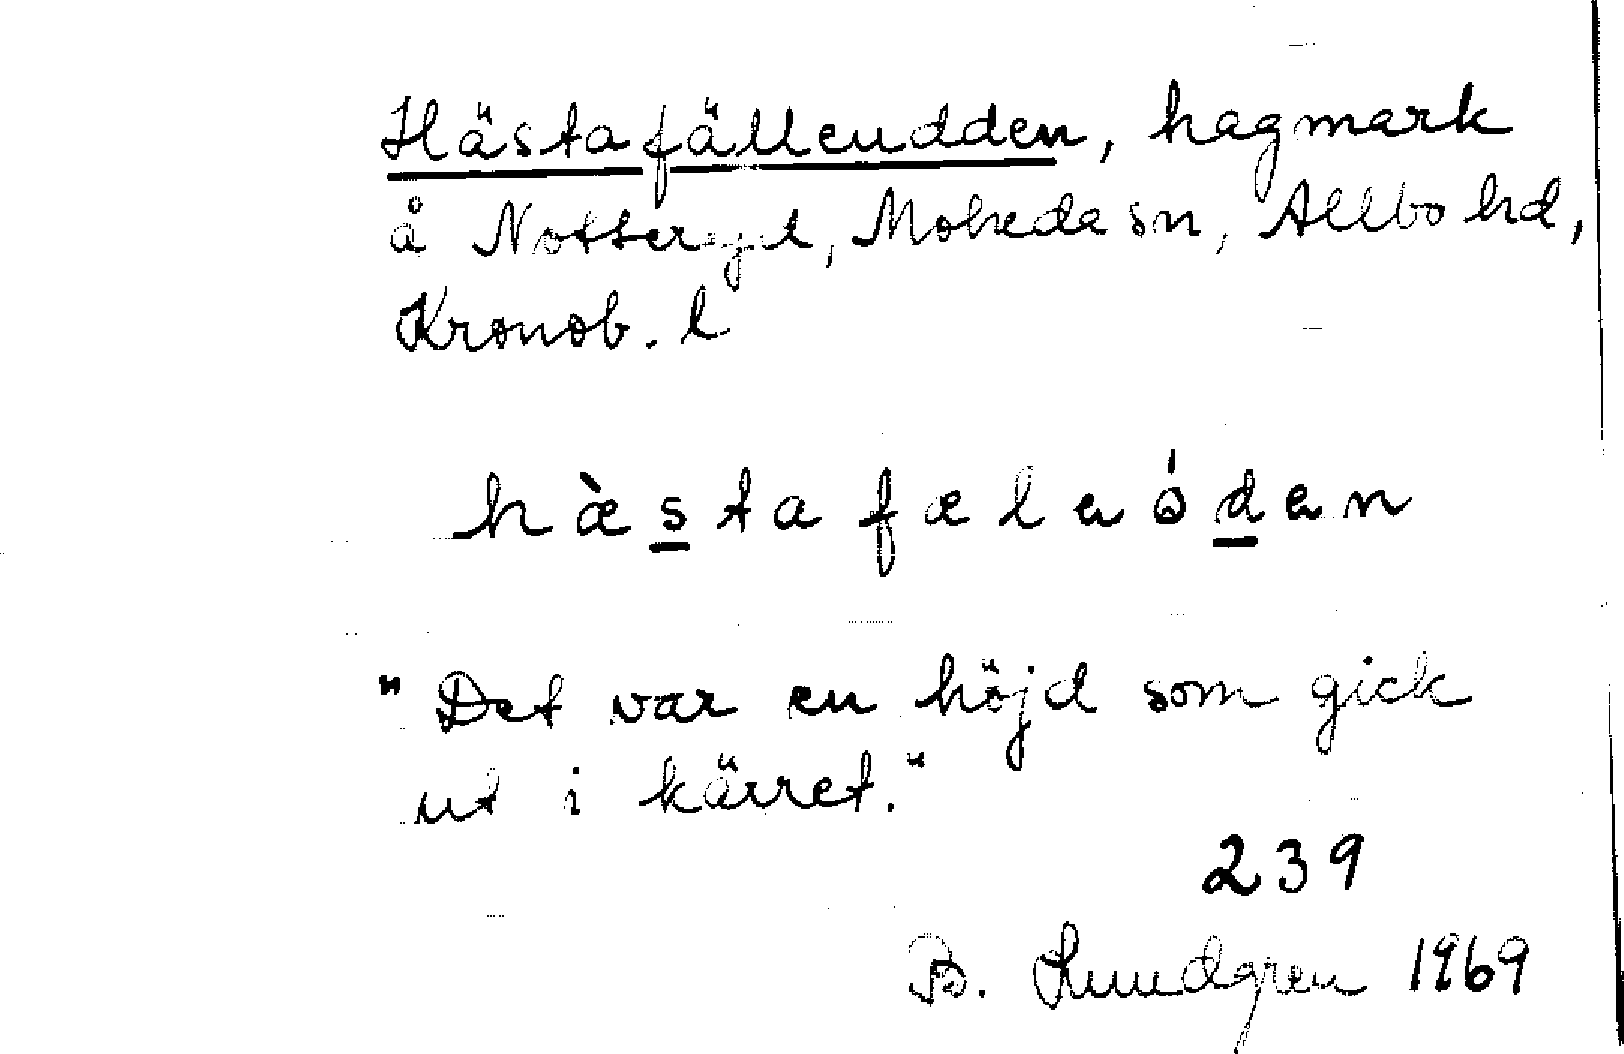 Hästafälleudden, hagmark
å Notteryd, Moheda sn, Allbo hd,
Kronob. l
hæ̀s̱tafæleóḏen
"Det var en höjd som gick
ut i kärret."
239
B. Lundgren 1969